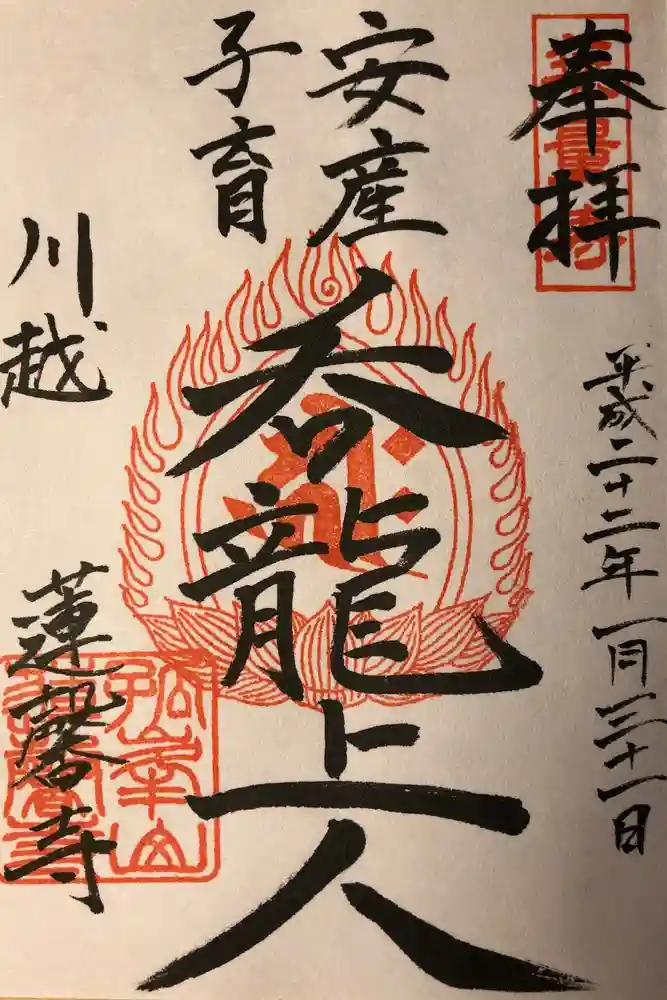 奉拝
平成二十二年一月三十一日
安産
子育
呑龍上人
川越
蓮馨寺